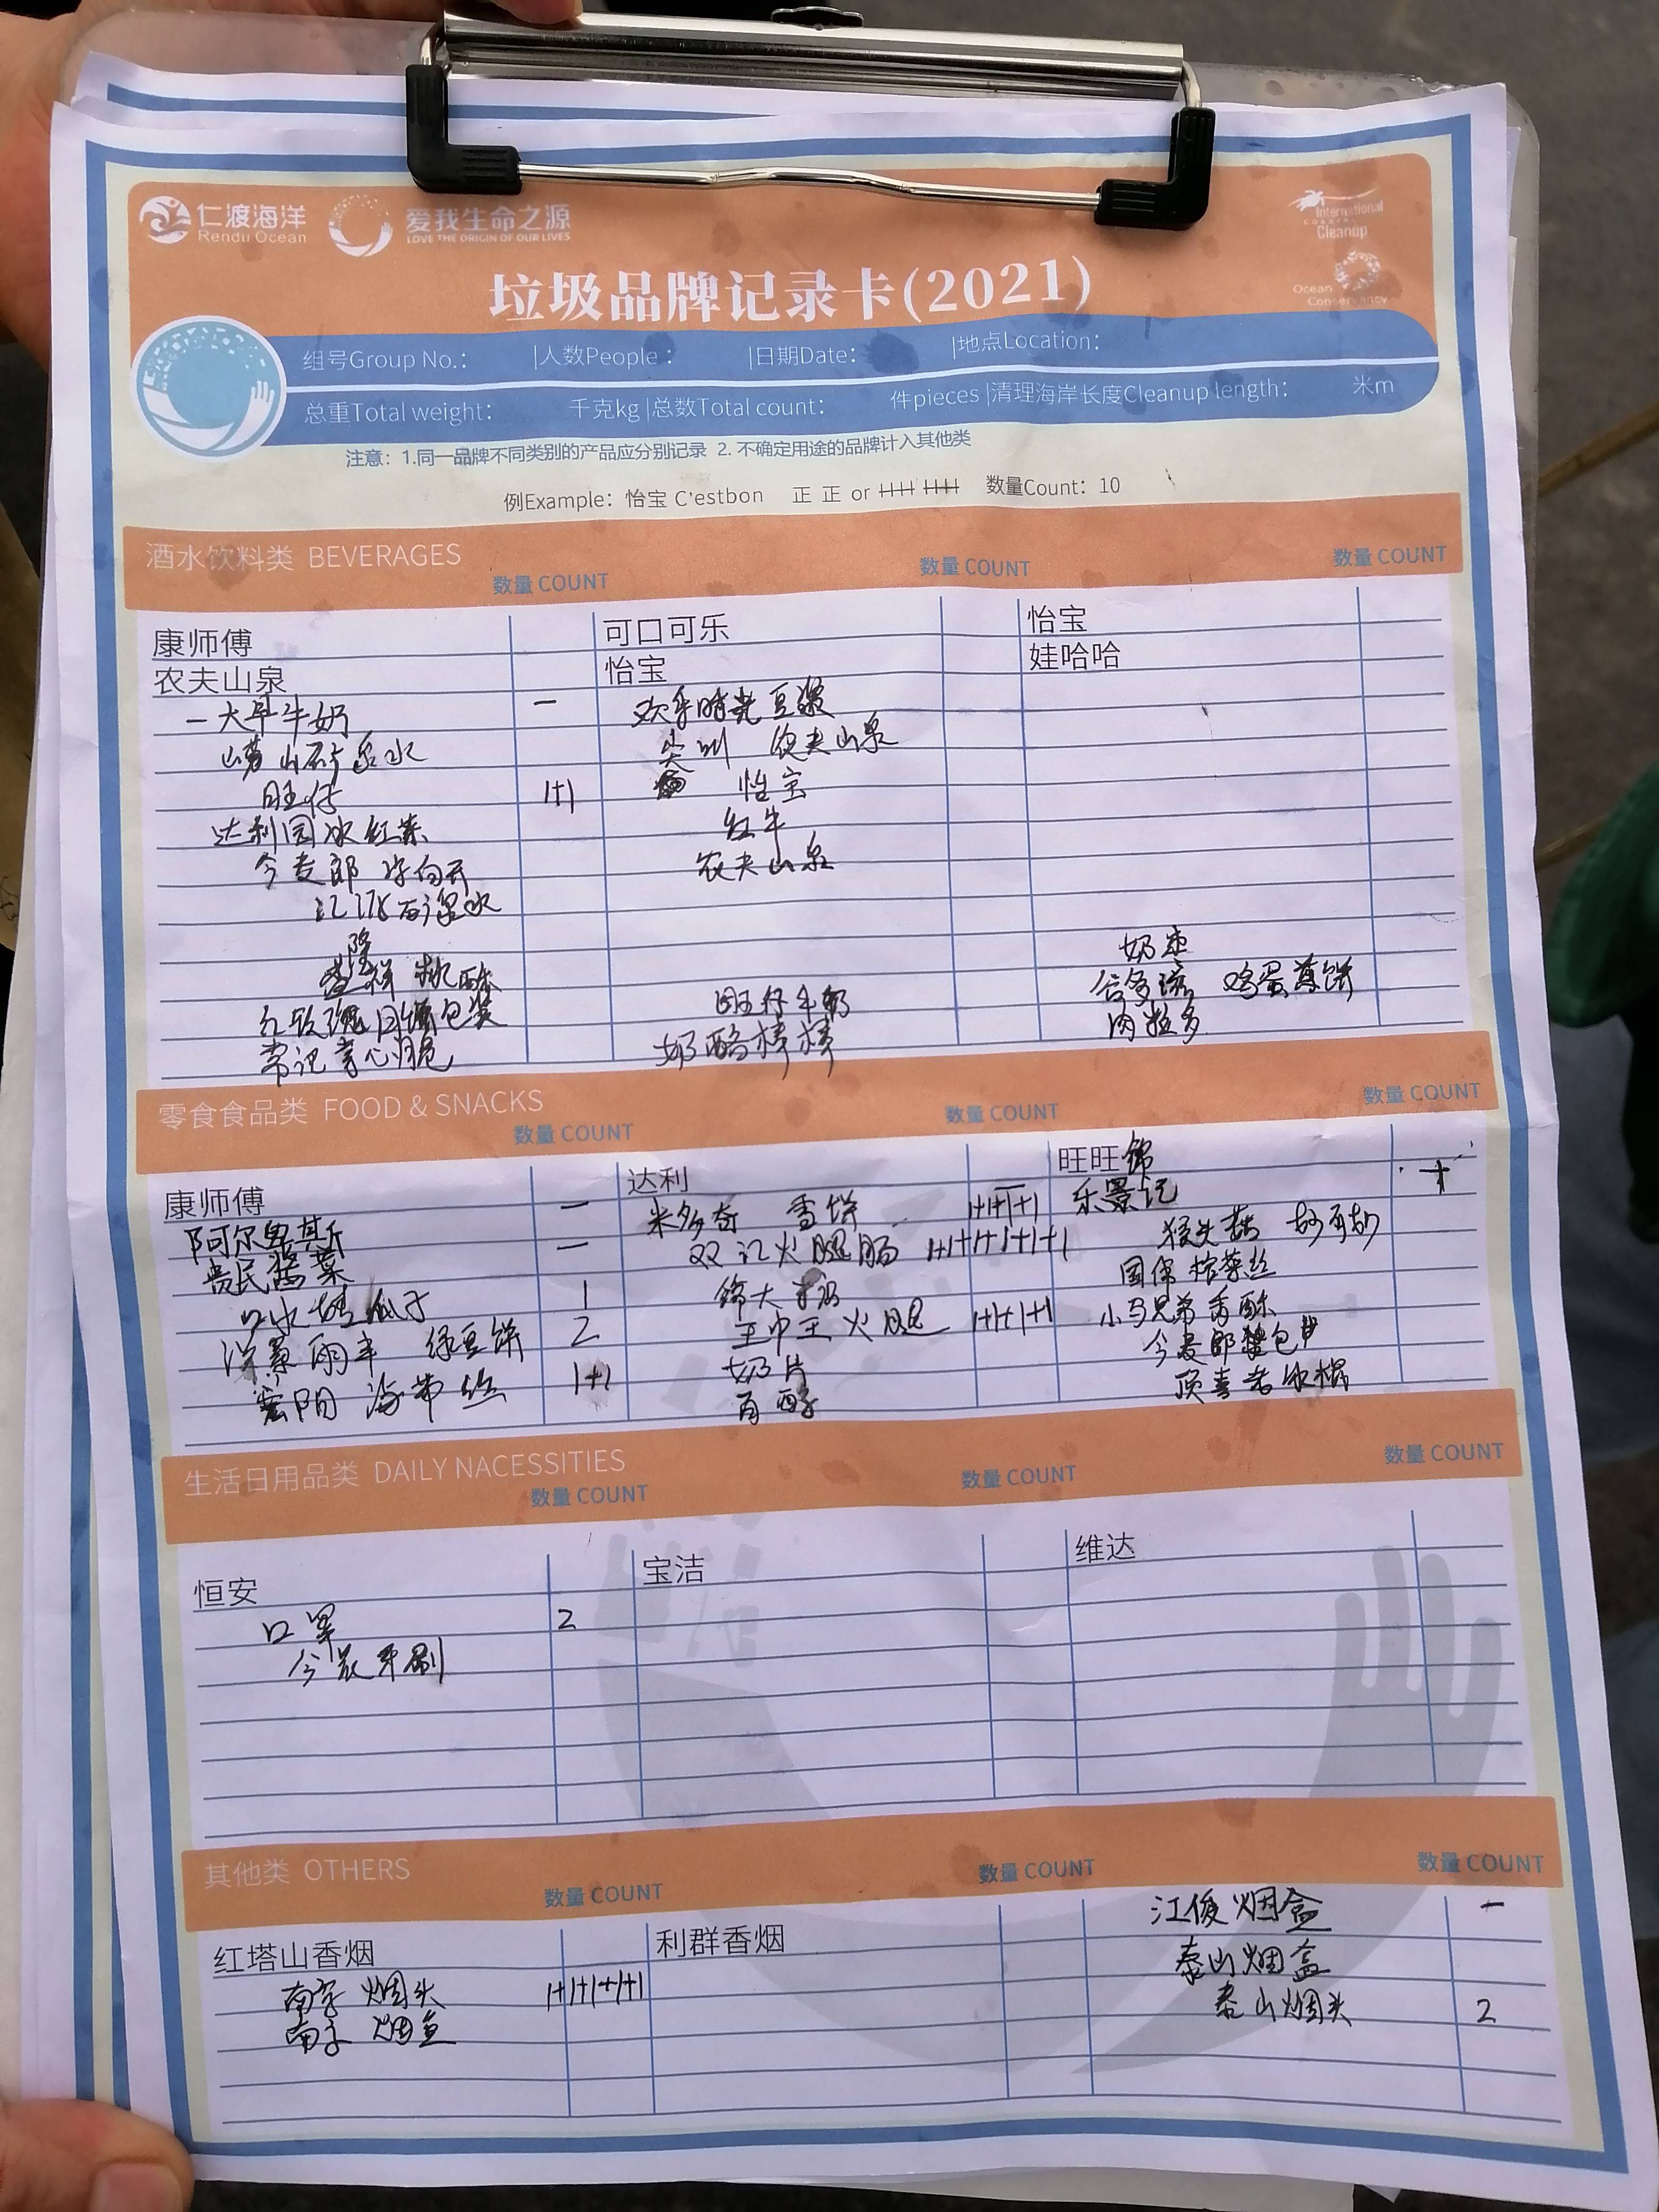 仁渡海洋
Rendu Ocean
爱我生命之源
LOVE THE ORIGIN OF OUR LIVES
International
Cleanup
Ocean
Conservancy
垃圾品牌记录卡(2021)
组号Group No.: |人数People: |日期Date: |地点Location:
总重Total weight: 千克kg |总数Total count: 件pieces |清理海岸长度Cleanup length: 米m
注意：1.同一品牌不同类别的产品应分别记录 2. 不确定用途的品牌计入其他类
例Example：怡宝 C'estbon 正 正 or 数量Count：10
酒水饮料类 BEVERAGES
数量 COUNT 数量 COUNT 数量 COUNT
康师傅 可口可乐 怡宝
农夫山泉 怡宝 娃哈哈
一大早牛奶 一 欢乐时光 豆浆
崂山矿泉水 尖叫 农夫山泉
旺仔 怡宝
达利园冰红茶 红牛
今麦郎 农夫山泉
奶枣
祥 桃酥 鸡蛋煎饼
红玫瑰 包装 旺仔牛奶 肉粒多
常记 奶酪棒棒
零食食品类 FOOD & SNACKS
数量 COUNT 数量 COUNT 数量 COUNT
康师傅 达利 旺旺
阿尔卑斯 一 米多奇 雪饼 乐景记
一 双汇火腿肠 猴头菇
口水娃瓜子 1
绿豆饼 2 王中王 火腿 小马兄弟香酥
海带丝 奶片 今麦郎
冰棍
生活日用品类 DAILY NACESSITIES
数量 COUNT 数量 COUNT 数量 COUNT
恒安 宝洁 维达
口罩 2
今晨牙刷
其他类 OTHERS
数量 COUNT 数量 COUNT 数量 COUNT
红塔山香烟 利群香烟 烟盒 一
南京 烟头 泰山烟盒
南京 烟盒 泰山烟头 2